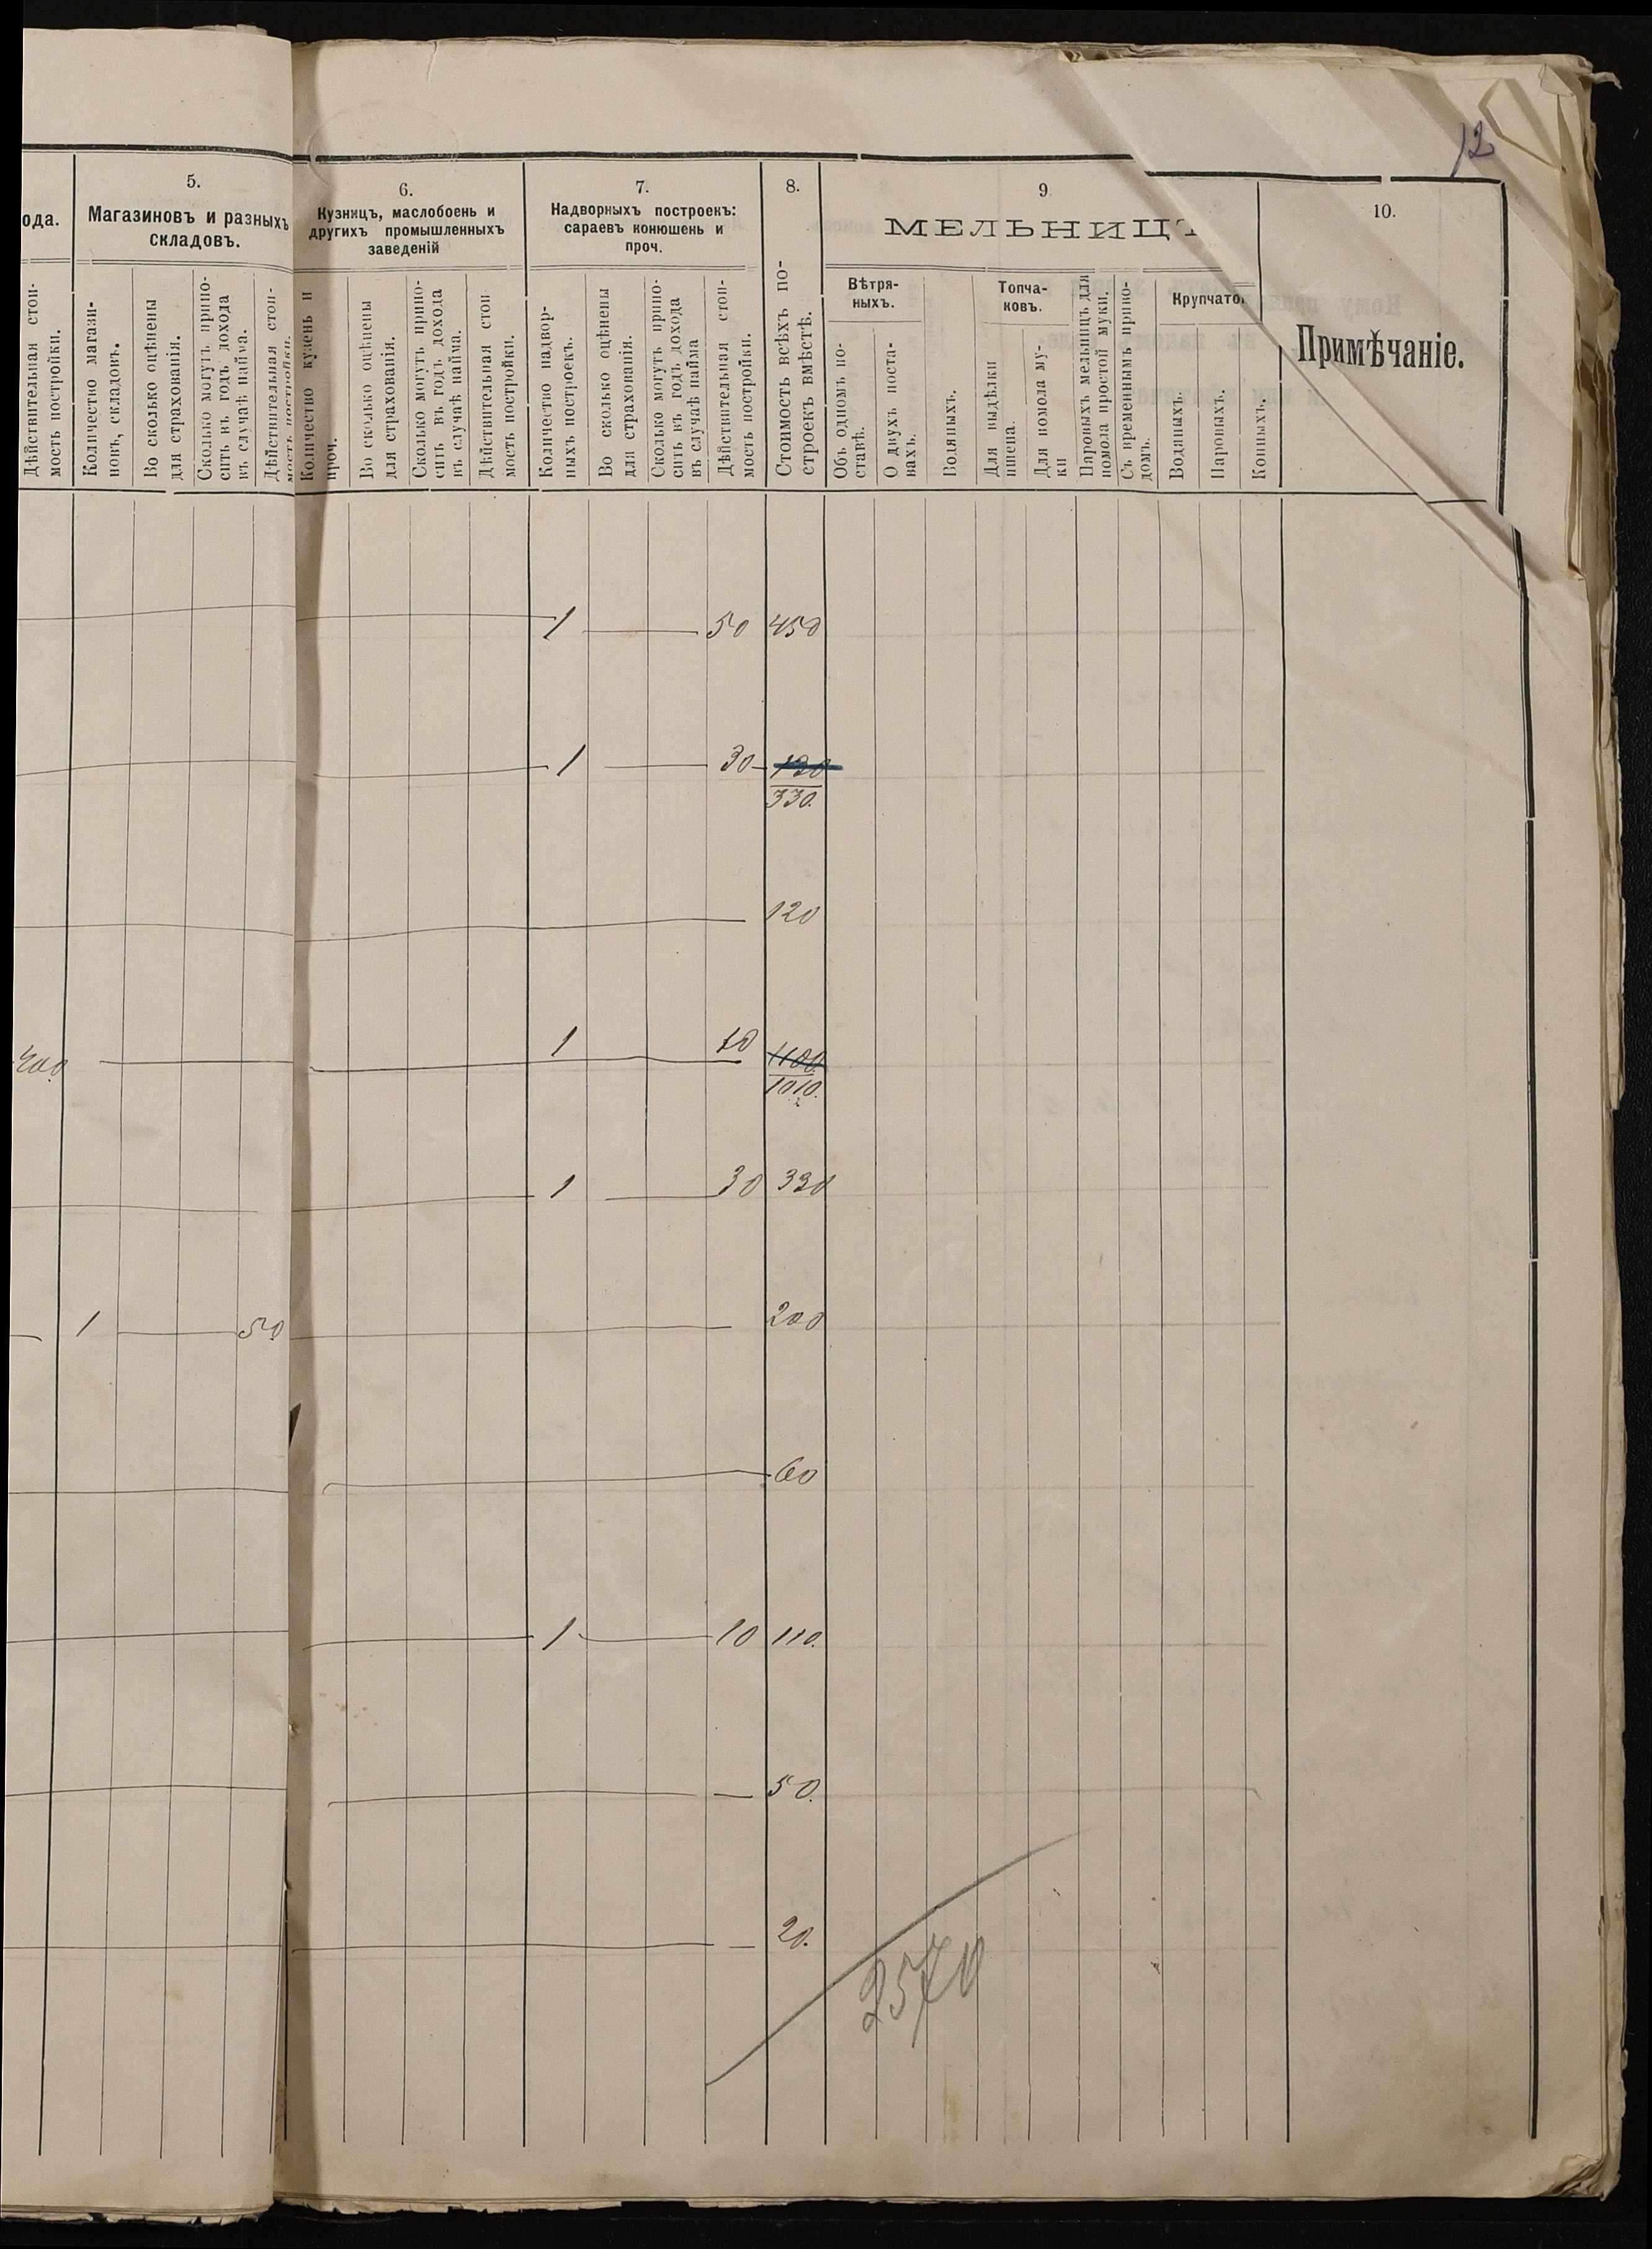 12
5.
6.
7.
8.
9
10.
ода.
Магазиновъ и разныхъ
складовъ.
Кузницъ, маслобоенъ и
другихъ промышленныхъ
заведеній
Надворныхъ построекъ:
сараевъ конюшень и
проч.
Стоимость всѣхъ по-
строекъ вмѣстѣ.
МЕЛЬНИЦЪ
Примѣчаніе.
Вѣтря-
ныхъ.
Топча-
ковъ.
Крупчато
Дѣйствительная стои-
мость постройки.
Количество магази-
новъ, складовъ.
Во сколько оцѣнены
для страхованія.
Сколько могутъ прино-
сить въ годъ дохода
въ случаѣ найма.
Дѣйствительная стои-
мость постройки.
Количество кузенъ и
проч.
Во сколько оцѣнены
для страхованія.
Сколько могутъ прино-
сить въ годъ дохода
въ случаѣ найма.
Дѣйствительная стои
мость постройки.
Количество надвор-
ныхъ построекъ.
Во сколько оцѣнены
для страхованія.
Сколько могутъ прино-
сить въ годъ дохода
въ случаѣ найма
Дѣйствительная стои-
мость постройки.
Объ одномъ по-
ставѣ.
О двухъ поста-
вахъ.
Водяныхъ.
Для выдѣлки
пшена.
Для помола му-
ки
Паровыхъ мельницъ для
помола простой муки.
Съ временнымъ приво-
домъ.
Водяныхъ.
Паровыхъ.
Конныхъ.
1 50 450
1 30 130
330.
120
400 1 10 1100.
1010.
1 30 330
1 50 200
60
1 10 110.
50.
20.
2570